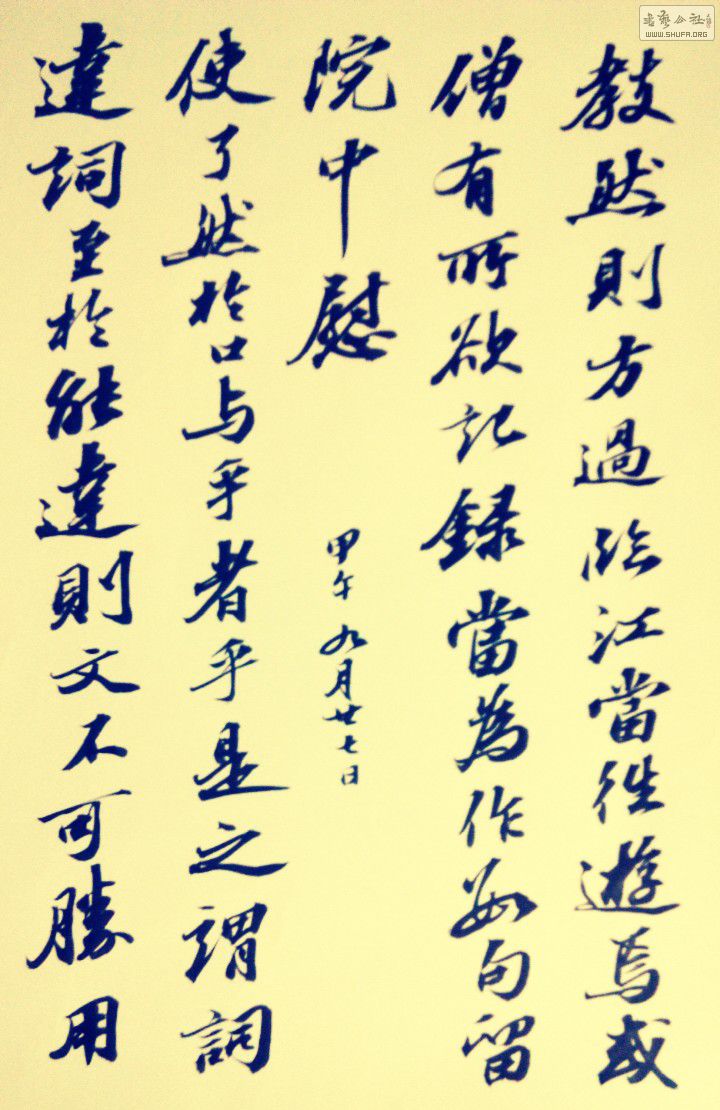 教然則方過臨江當徃遊焉或
僧有所欲記録當為作數句留
院中慰
甲午九月廿七日
使了然於口与乎者乎是之謂詞
達詞至於能達則文不可勝用
書藝公社
WWW.SHUFA.ORG